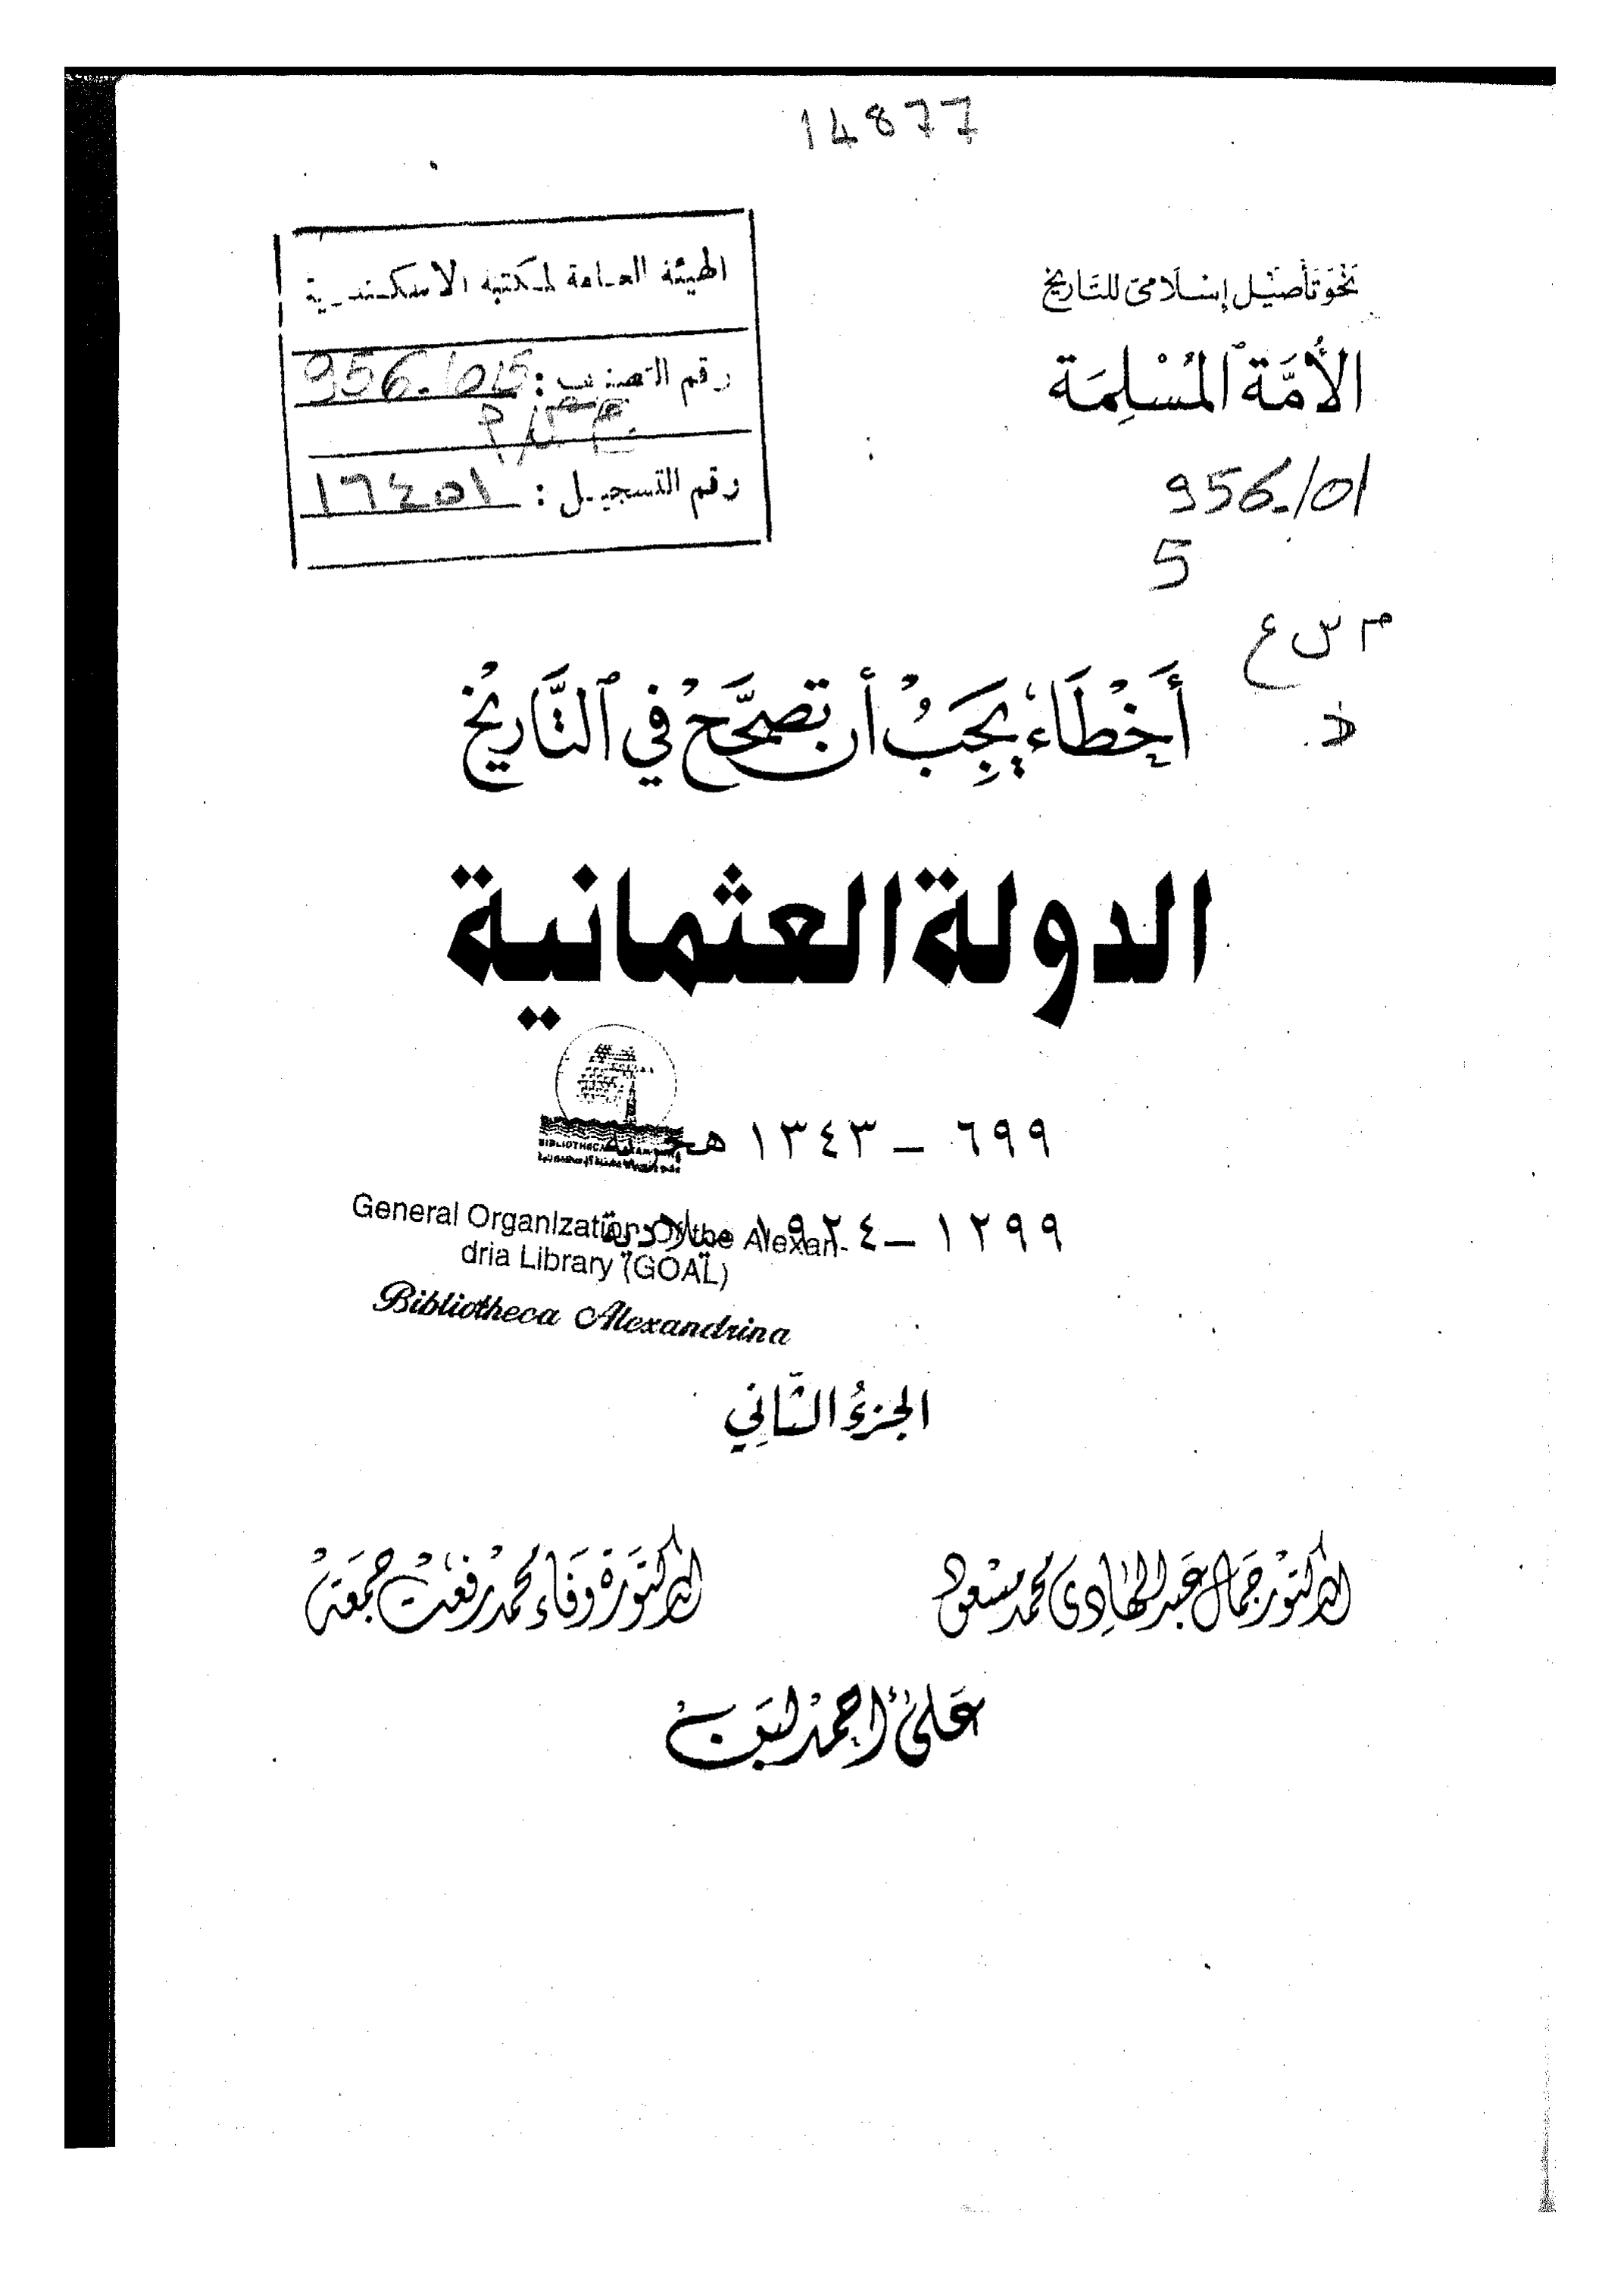 14877
الهيئة العامة لمكتبة الاسكندرية
رقم التصنيف :
رقم التسجيل : ١٦٤٥١
نَحْوَ تَأصِيْل إسْلَامِى للتَاريخ
الأُمَّة المُسْلِمَة
956./01
5
م س ع
د
أَخْطَاء يَجِبُ أن تصحَّح فِي التَّاريْخ
الدولة العثمانية
٦٩٩ – ١٣٤٣ هجرية
١٢٩٩ – ١٩٢٤ ميلادية
BIBLIOTHECA ALEXANDRINA
General Organization Of the Alexan-
dria Library (GOAL)
Bibliotheca Alexandrina
الجزءُ الثَّانِي
الدكتور جمال عبد الهادى محمد مسعود
الدكتورة وفاء محمد رفعت جمعة
على أحمد لبن